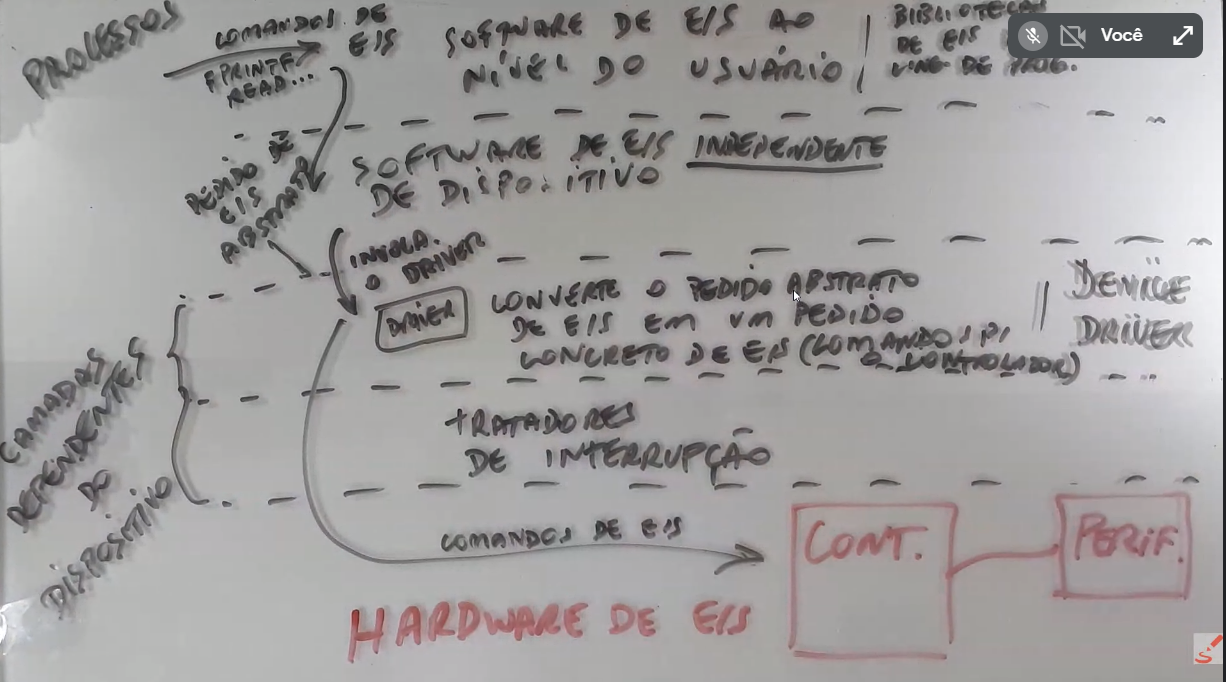 PROCESSOS
COMANDOS DE
E/S
FPRINTF
READ...
SOFTWARE DE E/S AO
NÍVEL DO USUÁRIO
BIBLIOTECAS
DE E/S
LING. DE PROG.
Você
PEDIDO DE
E/S
ABSTRATO
SOFTWARE DE E/S INDEPENDENTE
DE DISPOSITIVO
INVOCA
O DRIVER
DRIVER
CONVERTE O PEDIDO ABSTRATO
DE E/S EM UM PEDIDO
CONCRETO DE E/S (COMANDOS P/
O CONTROLADOR)
DEVICE
DRIVER
CAMADAS
DEPENDENTES
DO
DISPOSITIVO
TRATADORES
DE INTERRUPÇÃO
COMANDOS DE E/S
CONT.
PERIF.
HARDWARE DE E/S